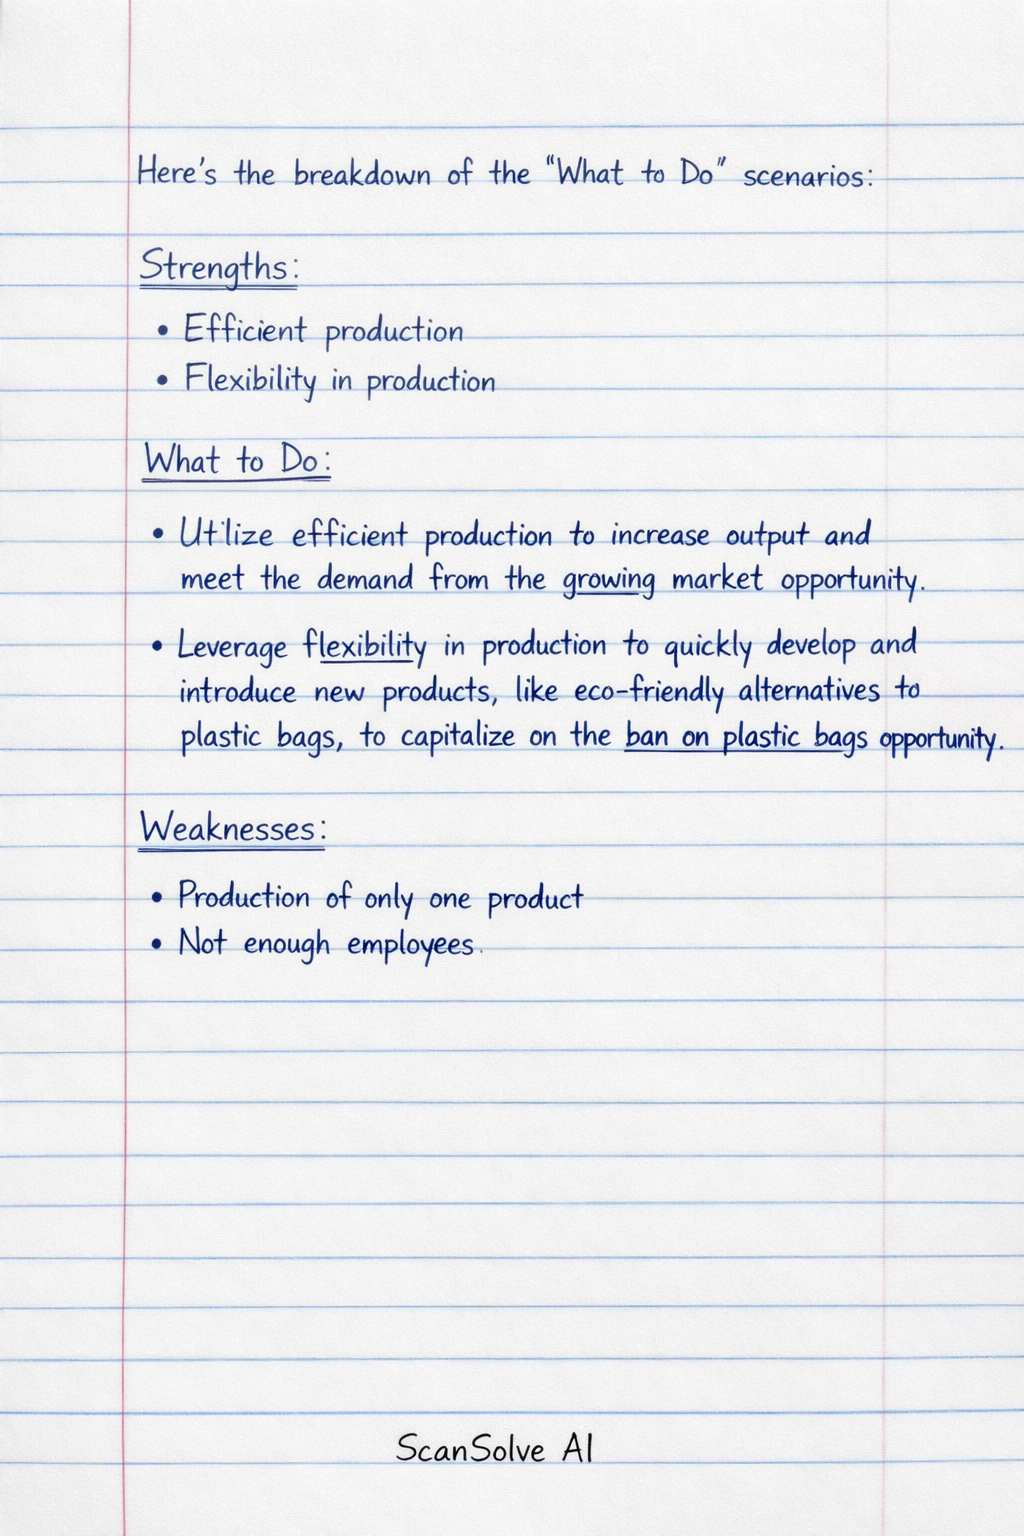 Here's the breakdown of the "What to Do" scenarios:
Strengths:
• Efficient production
• Flexibility in production
What to Do:
• Utilize efficient production to increase output and
meet the demand from the growing market opportunity.
• Leverage flexibility in production to quickly develop and
introduce new products, like eco-friendly alternatives to
plastic bags, to capitalize on the ban on plastic bags opportunity.
Weaknesses:
• Production of only one product
• Not enough employees.
ScanSolve AI